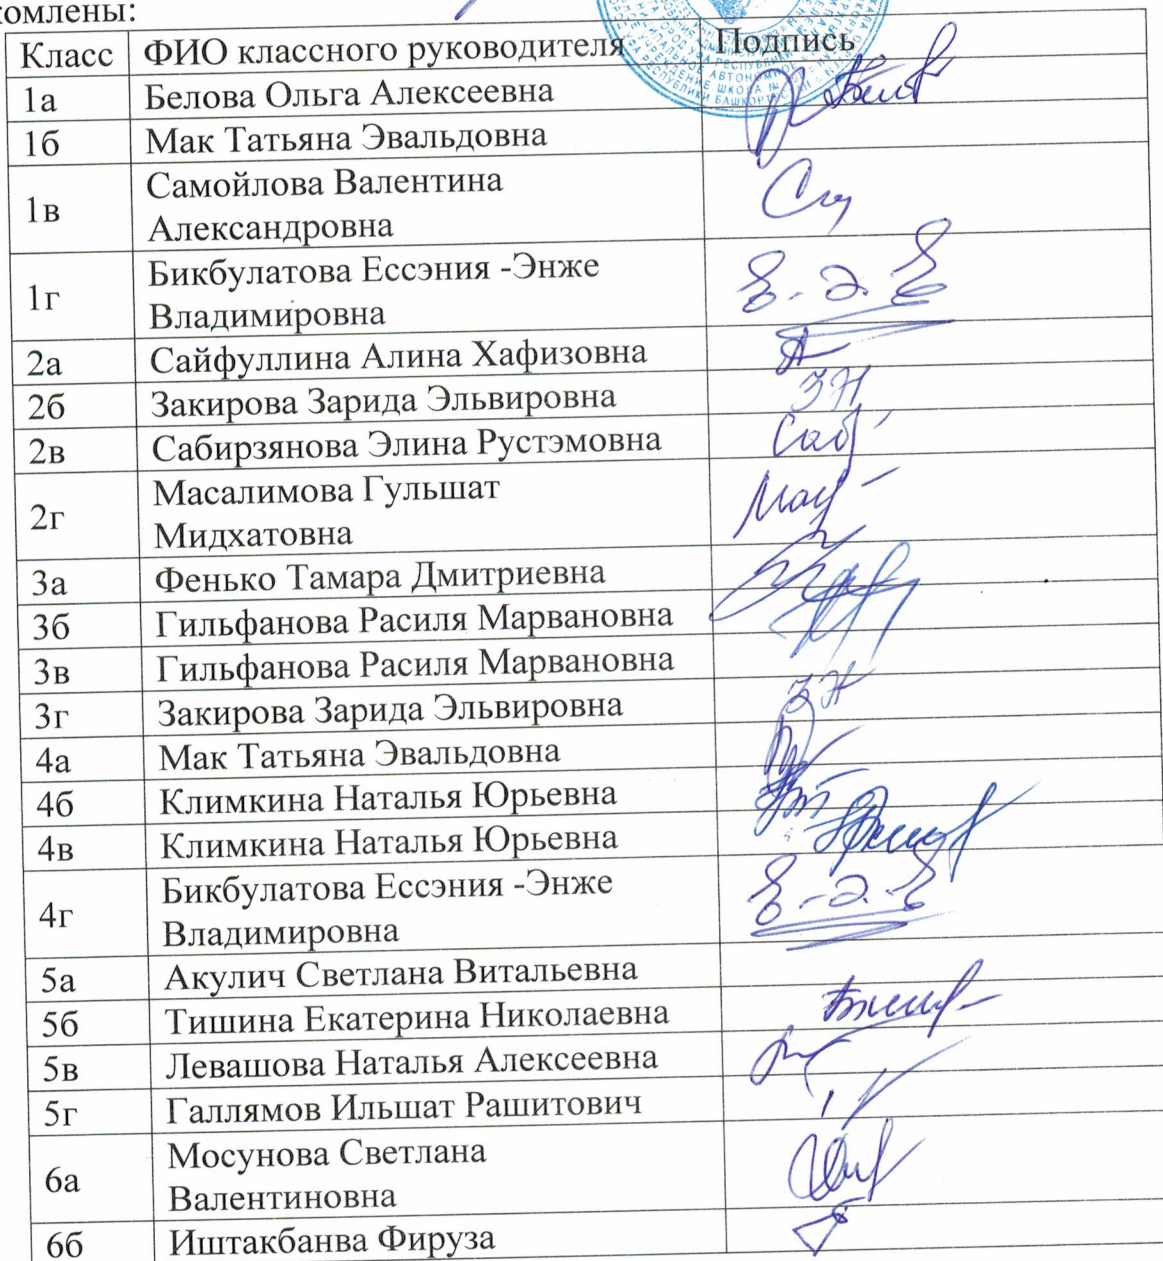 комлены:
Класс ФИО классного руководителя Подпись
1а Белова Ольга Алексеевна
1б Мак Татьяна Эвальдовна
1в Самойлова Валентина
Александровна
1г Бикбулатова Ессэния -Энже
Владимировна
2а Сайфуллина Алина Хафизовна
2б Закирова Зарида Эльвировна
2в Сабирзянова Элина Рустэмовна
2г Масалимова Гульшат
Мидхатовна
3а Фенько Тамара Дмитриевна
3б Гильфанова Расиля Марвановна
3в Гильфанова Расиля Марвановна
3г Закирова Зарида Эльвировна
4а Мак Татьяна Эвальдовна
4б Климкина Наталья Юрьевна
4в Климкина Наталья Юрьевна
4г Бикбулатова Ессэния -Энже
Владимировна
5а Акулич Светлана Витальевна
5б Тишина Екатерина Николаевна
5в Левашова Наталья Алексеевна
5г Галлямов Ильшат Рашитович
6а Мосунова Светлана
Валентиновна
6б Иштакбанва Фируза